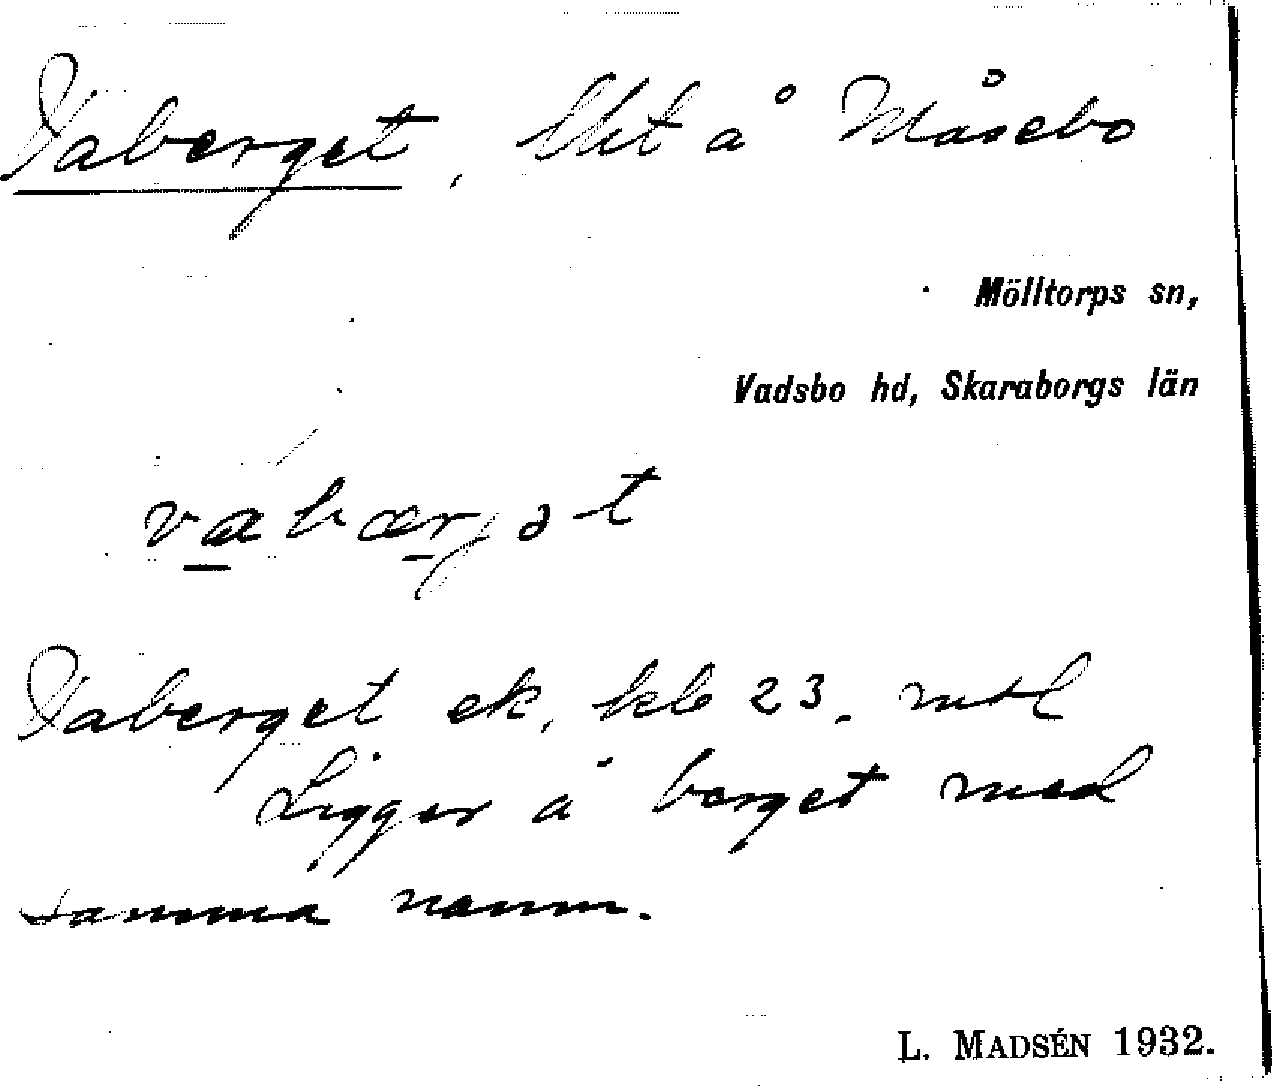 Vaberget, lht å Måsebo
Mölltorps sn,
Vadsbo hd, Skaraborgs län
vabærjət
Vaberget ek. kbl 23. mtl
Ligger å berget med
samma namn.
L. MADSÉN 1932.